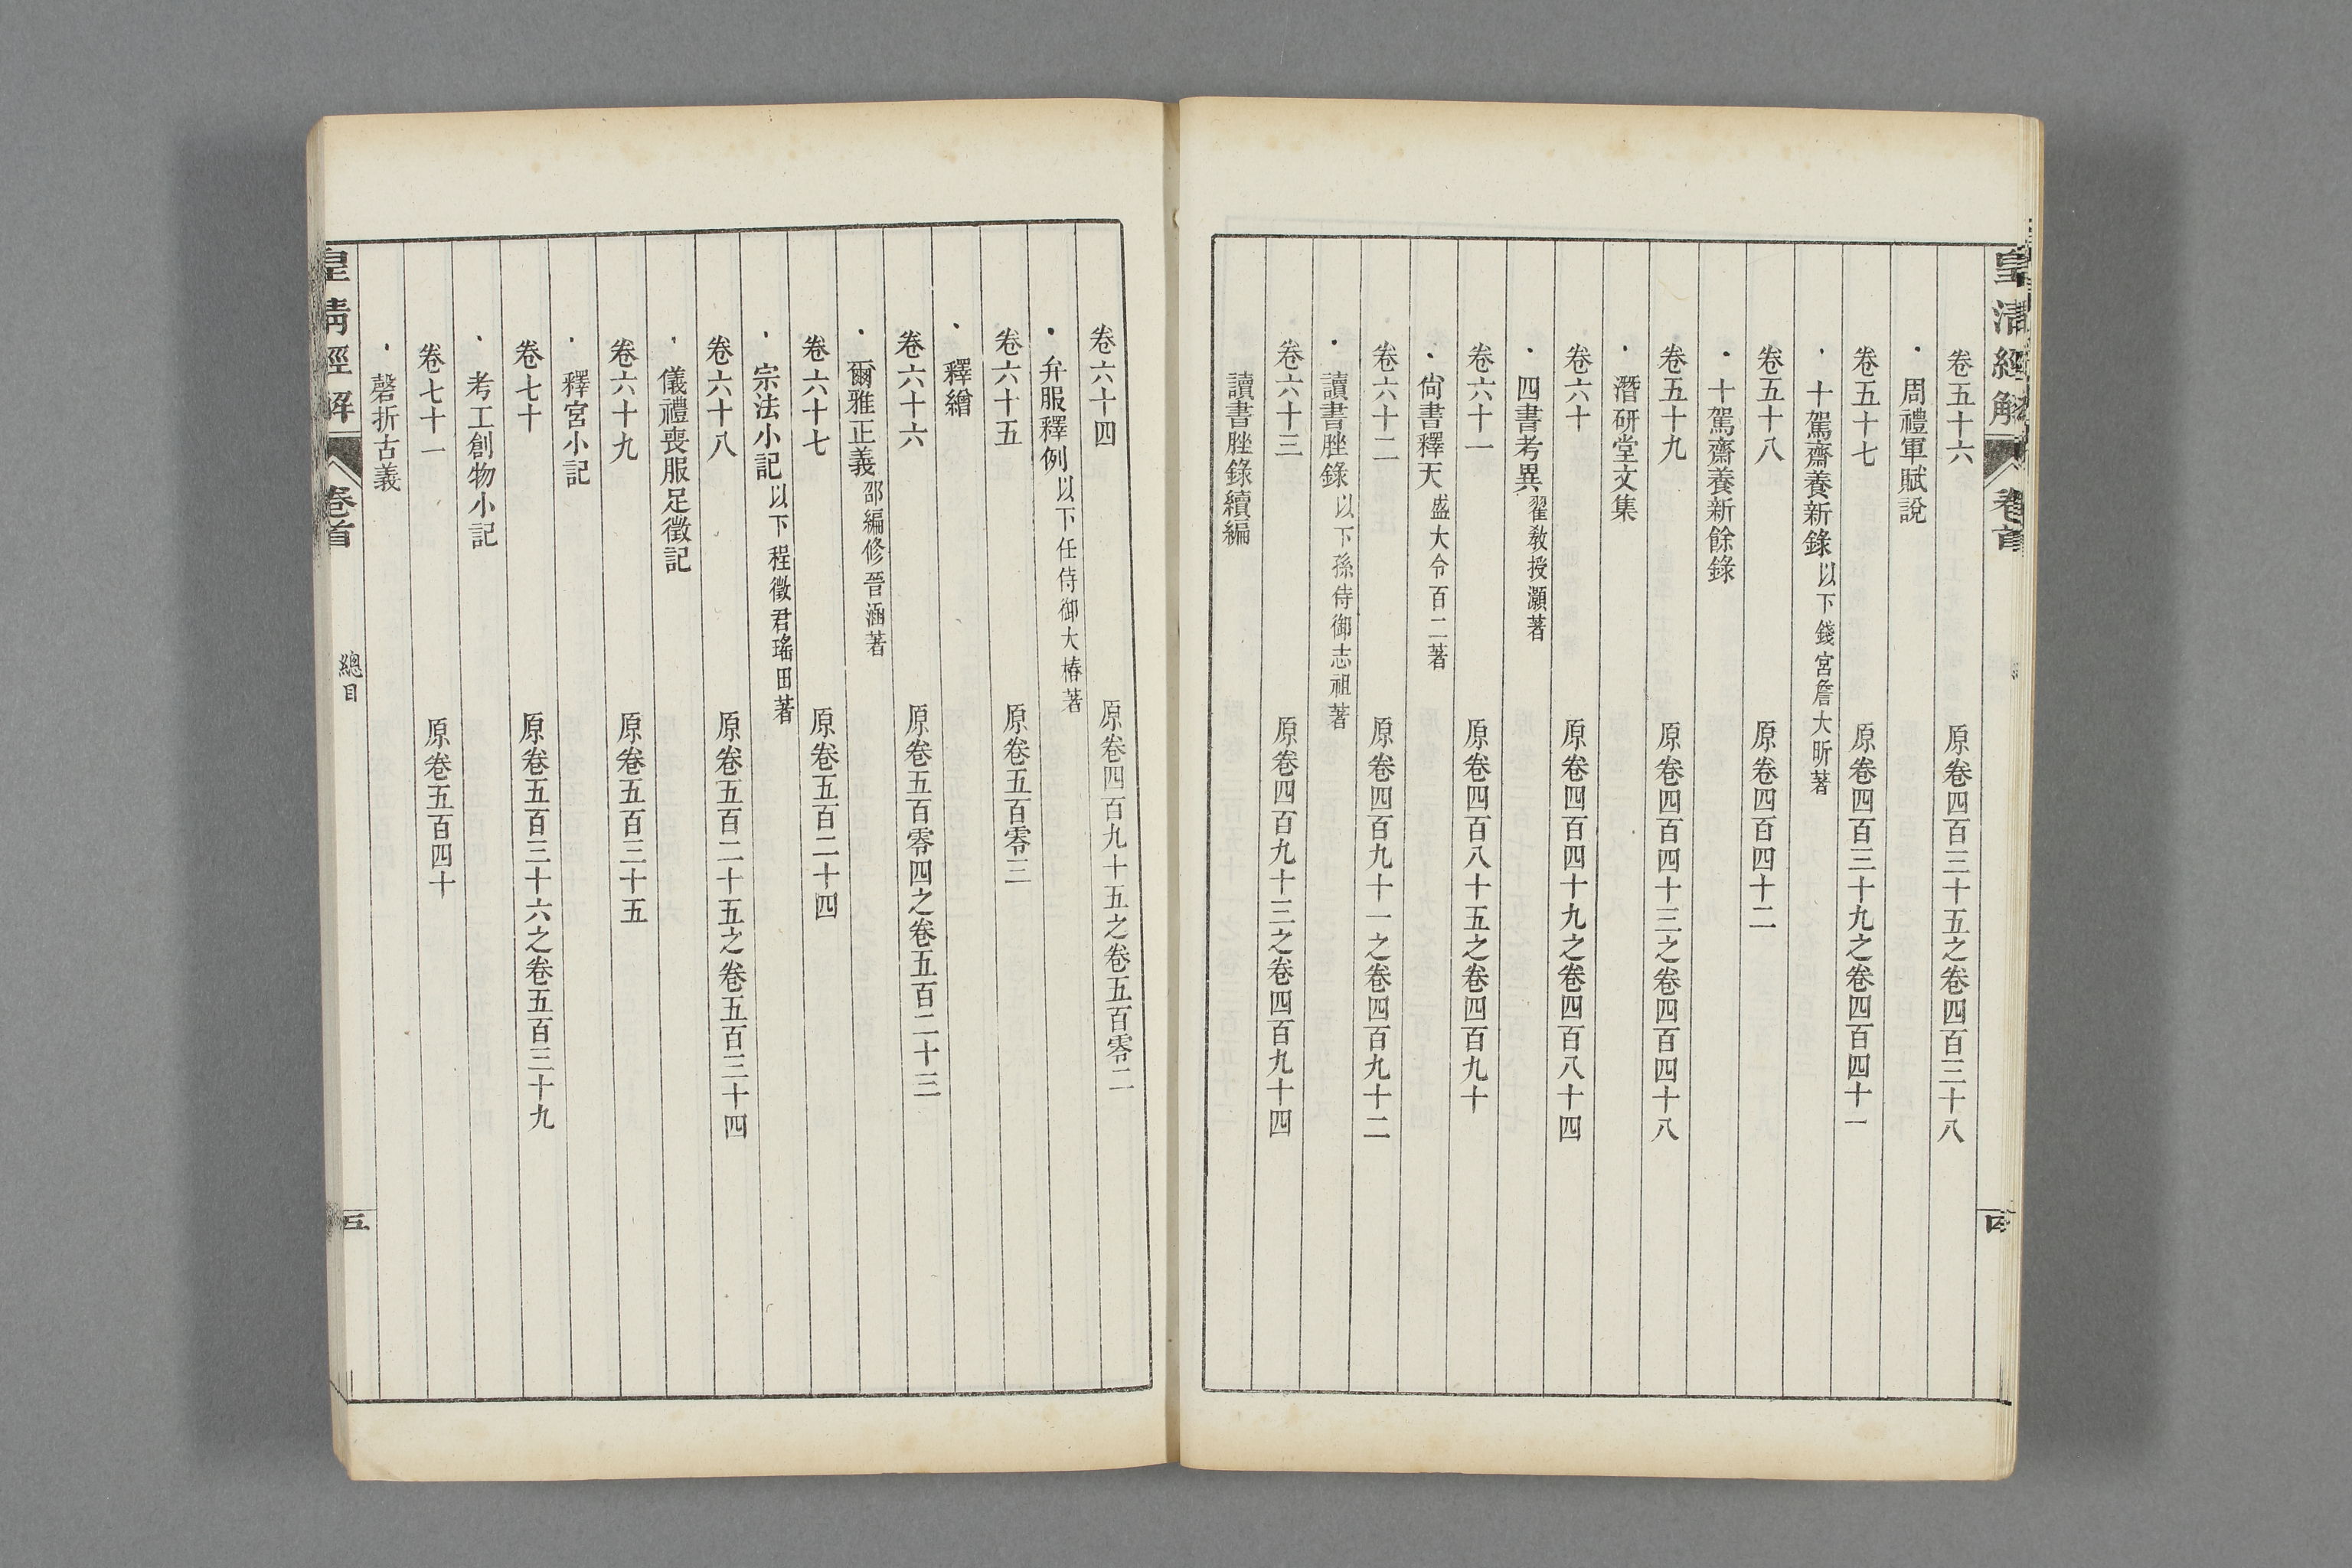 皇清經解 卷首 四
卷五十六 原卷四百三十五之卷四百三十八
周禮軍賦說
卷五十七 原卷四百三十九之卷四百四十一
十駕齋養新錄以下錢宮詹大昕著
卷五十八 原卷四百四十二
十駕齋養新餘錄
卷五十九 原卷四百四十三之卷四百四十八
潛研堂文集
卷六十 原卷四百四十九之卷四百八十四
四書考異翟教授灝著
卷六十一 原卷四百八十五之卷四百九十
尙書釋天盛大令百二著
卷六十二 原卷四百九十一之卷四百九十二
讀書脞錄以下孫侍御志祖著
卷六十三 原卷四百九十三之卷四百九十四
讀書脞錄續編
卷六十四 原卷四百九十五之卷五百零二
弁服釋例以下任侍御大椿著
卷六十五 原卷五百零三
釋繒
卷六十六 原卷五百零四之卷五百二十三
爾雅正義邵編修晉涵著
卷六十七 原卷五百二十四
宗法小記以下程徵君瑤田著
卷六十八 原卷五百二十五之卷五百三十四
儀禮喪服足徵記
卷六十九 原卷五百三十五
釋宮小記
卷七十 原卷五百三十六之卷五百三十九
考工創物小記
卷七十一 原卷五百四十
磬折古義
皇清經解 卷首 總目 五